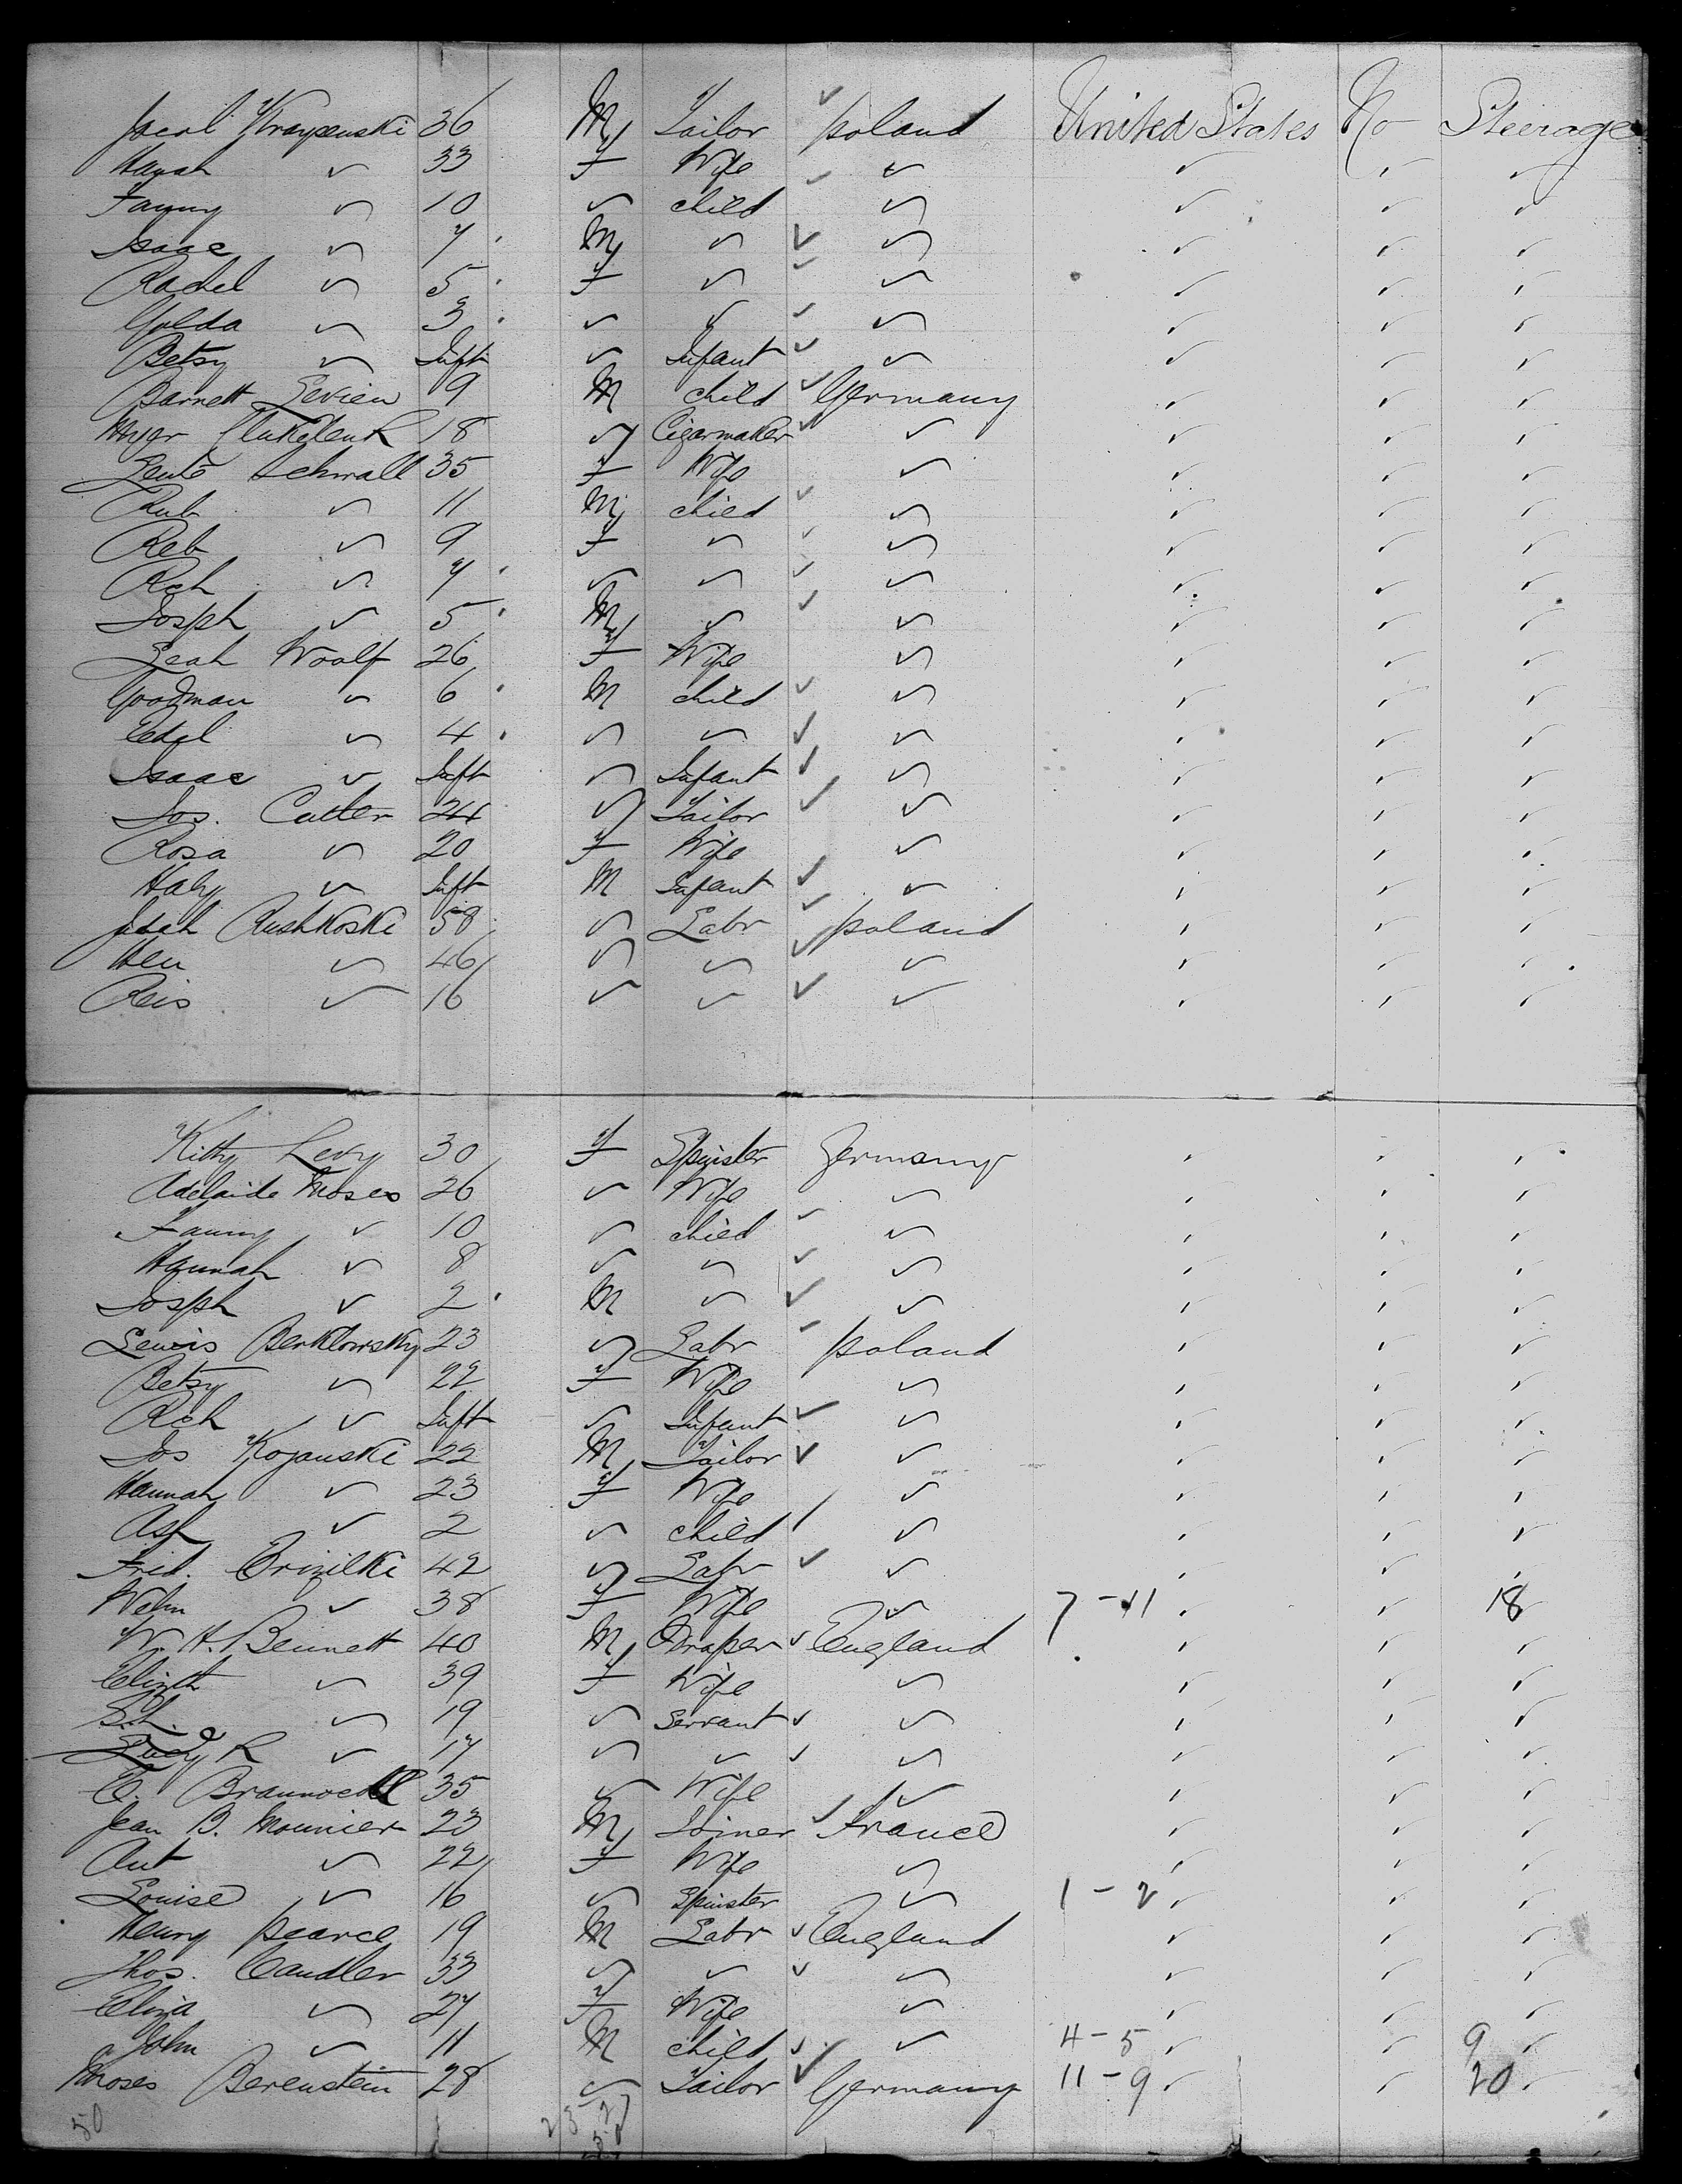 Jacol Krazpenski 36 M Tailor ✓ poland United States No Steerage
Hanah ✓ 33 F Wife ✓ ✓ ✓ ✓ ✓
Fanny ✓ 10 ✓ child ✓ ✓ ✓ ✓
Isaac ✓ 7 M ✓ ✓ ✓ ✓ ✓ ✓
Rachel ✓ 5 F ✓ ✓ ✓ ✓ ✓ ✓
Golda ✓ 3 ✓ ✓ ✓ ✓ ✓ ✓ ✓
Betsy ✓ Inft ✓ Infant ✓ ✓ ✓ ✓ ✓
Barnett Levien 9 M child ✓ Germany ✓ ✓ ✓
Myer 18 ✓ Cigarmaker ✓ ✓ ✓ ✓ ✓
Lente Schwall 35 F Wife ✓ ✓ ✓ ✓
Rub ✓ 11 M child ✓ ✓ ✓ ✓ ✓
Reb ✓ 9 F ✓ ✓ ✓ ✓ ✓ ✓
Rch ✓ 7 ✓ ✓ ✓ ✓ ✓ ✓ ✓
Josph ✓ 5 M ✓ ✓ ✓ ✓ ✓ ✓
Leah Woolf 26 F Wife ✓ ✓ ✓ ✓
Goodman ✓ 6 M child ✓ ✓ ✓ ✓ ✓
Edel ✓ 4 ✓ ✓ ✓ ✓ ✓ ✓ ✓
Isaac ✓ Inft ✓ Infant ✓ ✓ ✓ ✓ ✓
Jos. Cutter 24 ✓ Tailor ✓ ✓ ✓ ✓ ✓
Rosa ✓ 20 F Wife ✓ ✓ ✓ ✓
Haly ✓ Inft M Infant ✓ ✓ ✓ ✓ ✓
Judah Rushkoski 58 ✓ Labr ✓ poland ✓ ✓ ✓
Hen ✓ 46 ✓ ✓ ✓ ✓ ✓ ✓ ✓
Reis ✓ 16 ✓ ✓ ✓ ✓ ✓ ✓ ✓
Kitty Levy 30 F Spinster Germany ✓ ✓ ✓
Adelaide Moses 26 ✓ Wife ✓ ✓ ✓ ✓
Fanny ✓ 10 ✓ child ✓ ✓ ✓ ✓ ✓
Hannah ✓ 8 ✓ ✓ ✓ ✓ ✓ ✓ ✓
Josph ✓ 2 M ✓ ✓ ✓ ✓ ✓ ✓
Lewis Berklowsky 23 ✓ Labr ✓ poland ✓ ✓ ✓
Betsy ✓ 22 F Wife ✓ ✓ ✓ ✓
Rch ✓ Inft ✓ Infant ✓ ✓ ✓ ✓ ✓
Jos Kojanski 22 M Tailor ✓ ✓ ✓ ✓ ✓
Hannah ✓ 23 F Wife ✓ ✓ ✓ ✓
Ash ✓ 2 ✓ child ✓ ✓ ✓ ✓ ✓
Fred. Brizilki 42 ✓ Labr ✓ ✓ ✓ ✓ ✓
Welm ✓ 38 F Wife ✓ 7-11 ✓ ✓ 18
W. H. Bennett 40 M Draper ✓ England ✓ ✓ ✓
Elizth ✓ 39 F Wife ✓ ✓ ✓ ✓
S.h. ✓ 19 ✓ Servant ✓ ✓ ✓ ✓ ✓
Lucy R ✓ 17 ✓ ✓ ✓ ✓ ✓ ✓ ✓
E. 35 ✓ Wife ✓ ✓ ✓ ✓
Jean B. Mounier 23 M Joiner ✓ France ✓ ✓ ✓
Ant ✓ 22 F Wife ✓ ✓ ✓ ✓
Louise ✓ 16 ✓ Spinster ✓ 1-2 ✓ ✓ ✓
Henry pearce 19 M Labr ✓ England ✓ ✓ ✓
Thos. Candler 33 ✓ ✓ ✓ ✓ ✓ ✓ ✓
Eliza ✓ 27 F Wife ✓ ✓ ✓ ✓
John ✓ 11 M child ✓ ✓ 4-5 ✓ ✓ 9 ✓
Moses Berenstein 28 ✓ Tailor ✓ Germany 11-9 ✓ ✓ 20 ✓
50